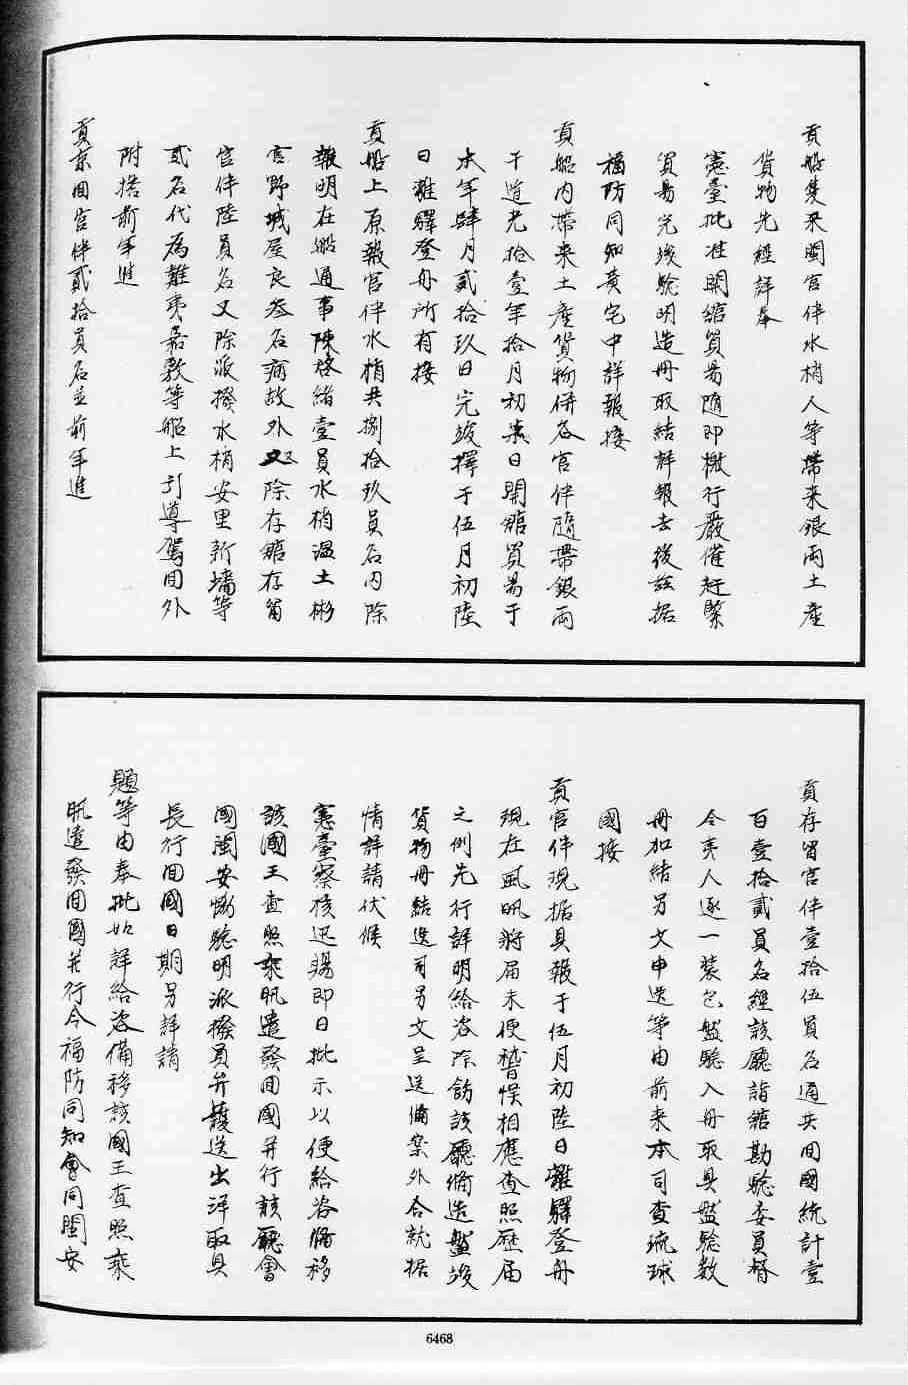 貢船隻來閩官伴水梢人等帶來銀兩土產
貨物先經詳奉
憲臺批准開館貿易隨即檄行嚴催赶緊
貿易完竣驗明造冊取結詳報去後茲据
福防同知黃宅中詳報接
貢船內帶來土產貨物併各官伴隨帶銀兩
于道光拾壹年拾月初柒日開館貿易于
本年肆月貳拾玖日完竣擇于伍月初陸
日離驛登舟所有接
貢船上原報官伴水梢共捌拾玖員名內除
報明在船通事陳啓緒壹員水梢溫土彬
宮野城屋良叁名病故外又除存館存留
官伴陸員名又除派撥水梢安里新墻等
貳名代為難夷嘉敷等船上引導駕回外
附搭前年進
貢京回官伴貳拾員名並前年進
貢存留官伴壹拾伍員名通共回國統計壹
百壹拾貳員名經該廳詣館勘驗委員督
令夷人逐一裝包盤驗入冊取具盤驗數
冊加結另文申送等由前來本司查琉球
國接
貢官伴現据具報于伍月初陸日離驛登舟
現在風帆將届未便稽悮相應查照歷届
之例先行詳明給咨除飭該廳俻造盤竣
貨物冊結送司另文呈送俻案外合就据
情詳請伏候
憲臺察核迅賜即日批示以便給咨俻移
該國王查照乘帆遣發回國并行該廳會
同閩安協驗明派撥員弁護送出洋取具
長行回國日期另詳請
題等由奉批如詳給咨俻移該國王查照乘
帆遣發回國并行令福防同知會同閩安
6468